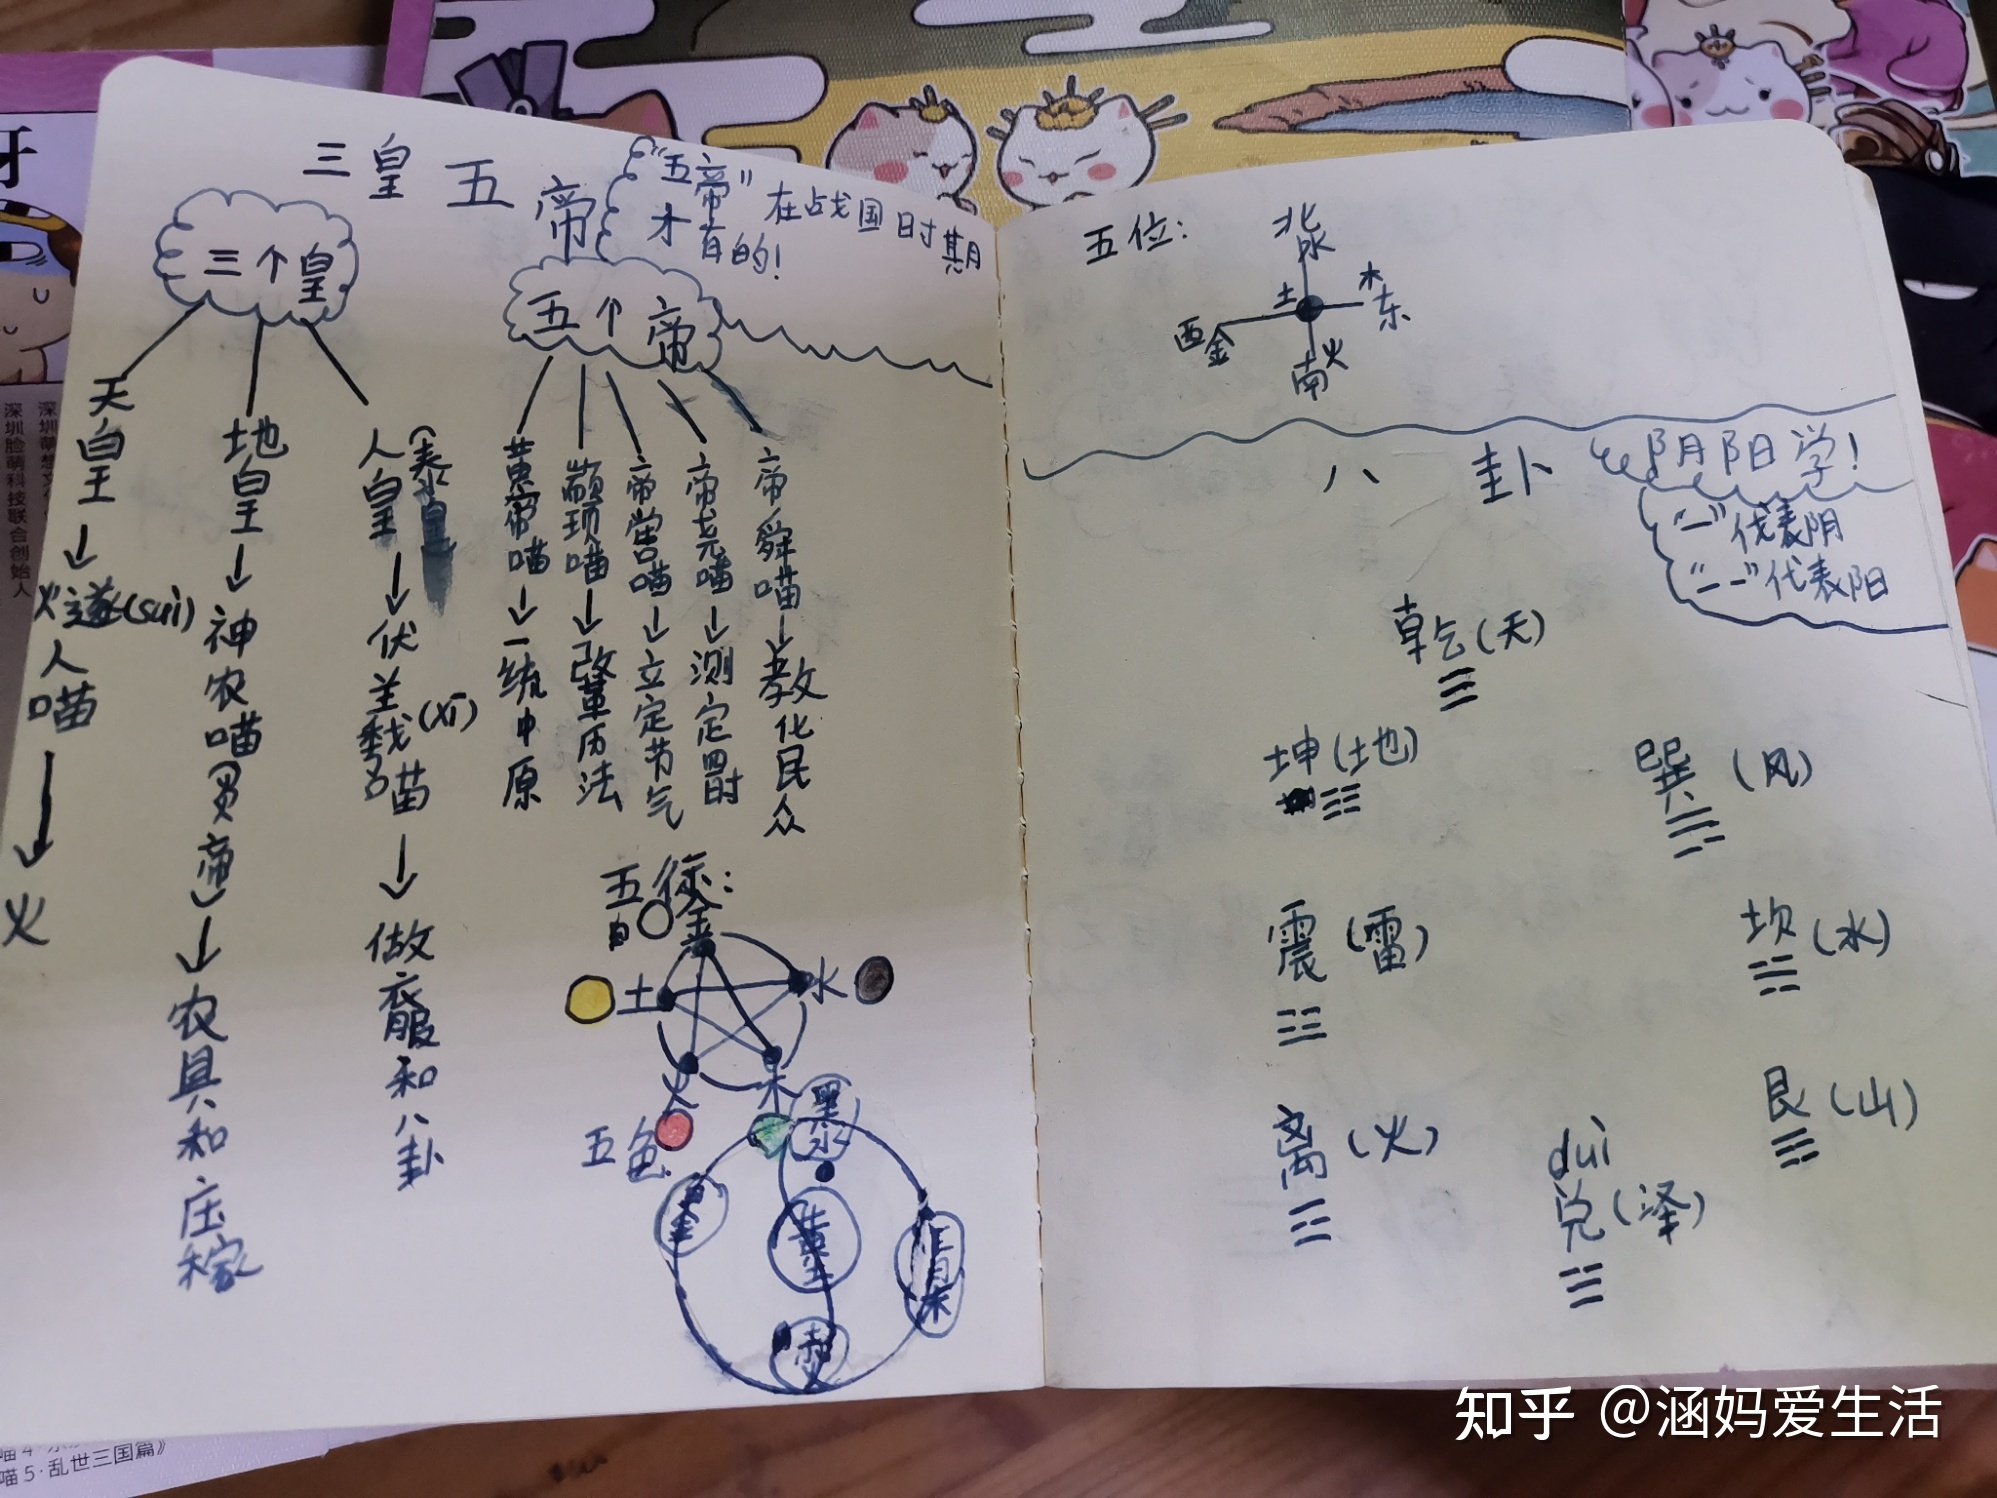 三皇五帝
"五帝"在战国时期
才有的!
三个皇
五个帝
天皇
燧(sui)人喵
火
地皇
神农喵(炎帝)
农具和庄稼
人皇(泰皇
伏羲(xī)喵
做衣服和八卦
黄帝喵
一统中原
颛顼喵
改革历法
帝喾喵
立定节气
帝尧喵
测定四时
帝舜喵
教化民众
五行:
白
金
土
水
火
木
五色
黑水
金
黄土
青木
赤火
五位:
北水
土
木东
西金
南火
八卦
阴阳学!
"一"代表阴
"--"代表阳
乾(天)
☰
坤(地)
☷
巽(风)
震(雷)
坎(水)
艮(山)
离(火)
dui
兑(泽)
深圳脸萌科技联合创始人
喵5·乱世三国篇》
知乎 @涵妈爱生活